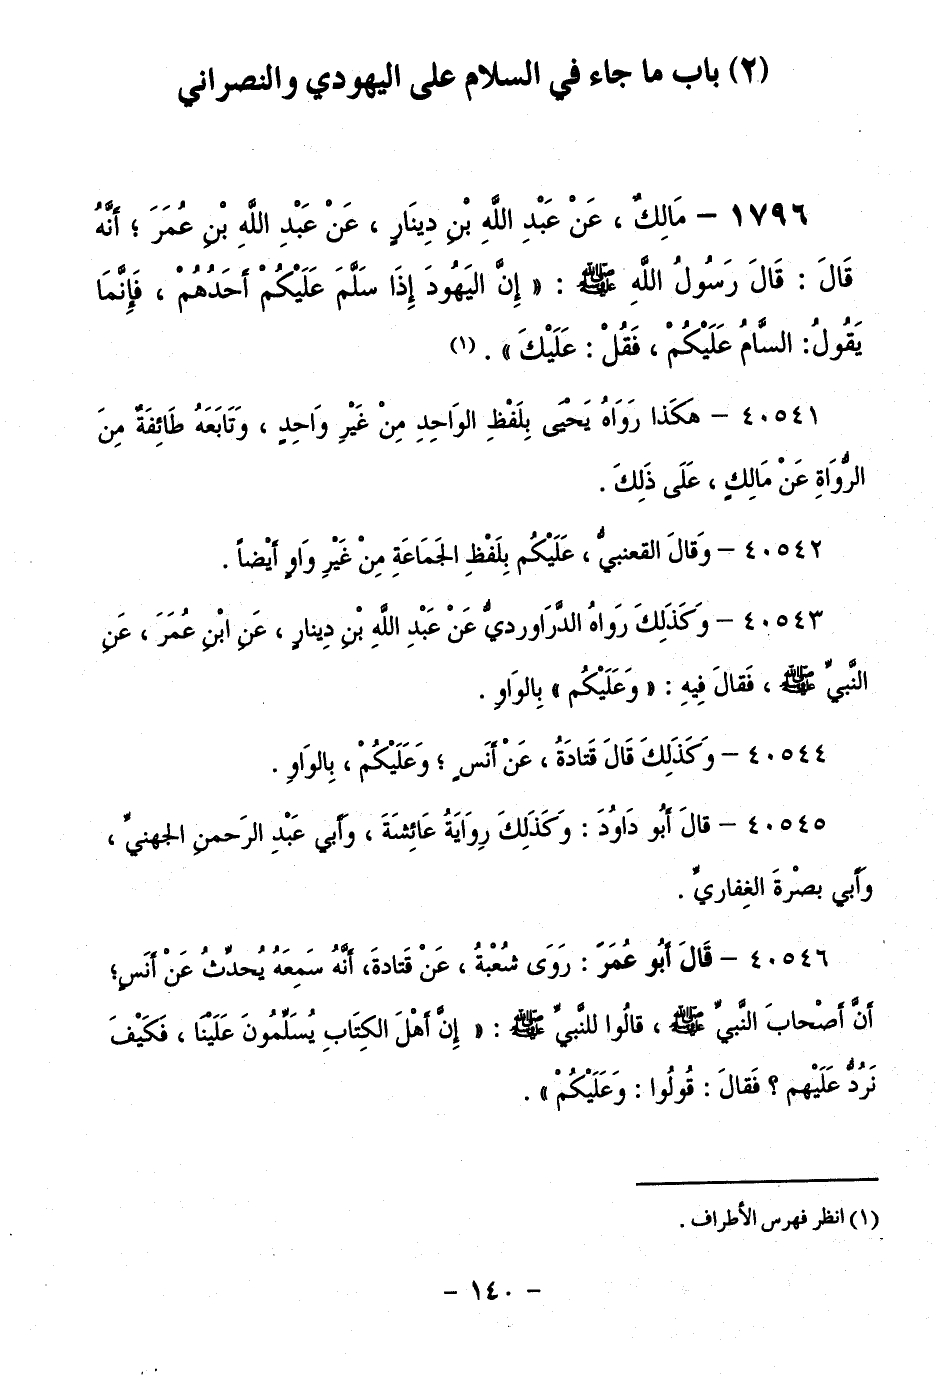 (٢) باب ما جاء في السلام على اليهودي والنصراني
١٧٩٦ – مَالِكٌ ، عَنْ عَبْدِ اللَّهِ بْنِ دِينَارٍ ، عَنْ عَبْدِ اللَّهِ بْنِ عُمَرَ ؛ أَنَّهُ
قَالَ : قَالَ رَسُولُ اللَّهِ ﷺ : « إِنَّ اليَهُودَ إِذَا سَلَّمَ عَلَيْكُمْ أَحَدُهُمْ ، فَإِنَّمَا
يَقُولُ: السَّامُ عَلَيْكُمْ ، فَقُلْ : عَلَيْكَ » . (١)
٤٠٥٤١ – هكَذا رَوَاهُ يَحْيَى بِلَفْظِ الوَاحِدِ مِنْ غَيْرِ وَاحِدٍ ، وَتَابَعَهُ طَائِفَةٌ مِنَ
الرُّوَاةِ عَنْ مَالِكٍ ، عَلَى ذَلِكَ .
٤٠٥٤٢ – وَقالَ القعنبيُّ ، عَلَيْكُم بِلَفْظِ الجَمَاعَةِ مِنْ غَيْرِ وَاوٍ أَيْضاً .
٤٠٥٤٣ – وَكَذَلِكَ رَوَاهُ الدَّرَاورديُّ عَنْ عَبْدِ اللَّهِ بْنِ دِينارٍ ، عَنِ ابْنِ عُمَرَ ، عَنِ
النَّبيِّ ﷺ ، فَقالَ فِيهِ : « وَعَلَيْكُم » بِالوَاوِ .
٤٠٥٤٤ – وَكَذَلِكَ قَالَ قَتادَةُ ، عَنْ أَنَسٍ ؛ وَعَلَيْكُمْ ، بِالوَاوِ .
٤٠٥٤٥ – قالَ أَبُو دَاوُدَ : وَكَذَلِكَ رِوَايَةُ عَائِشَةَ ، وَأَبي عَبْدِ الرَحمنِ الجهنيِّ ،
وَأَبي بصْرةَ الغِفاريِّ .
٤٠٥٤٦ – قَالَ أَبُو عُمَرَ : رَوَى شُعْبَةُ ، عَنْ قَتادةَ، أَنَّهُ سَمِعَهُ يُحدِّثُ عَنْ أَنَسٍ؛
أَنَّ أَصْحابَ النَّبيِّ ﷺ ، قالُوا للنَّبيِّ ﷺ : « إِنَّ أَهْلَ الكِتَابِ يُسَلِّمُونَ عَلَيْنَا ، فَكَيْفَ
نَرُدُّ عَلَيْهم ؟ فَقالَ : قُولُوا : وَعَلَيْكُمْ » .
(١) انظر فهرس الأطراف .
– ١٤٠ –